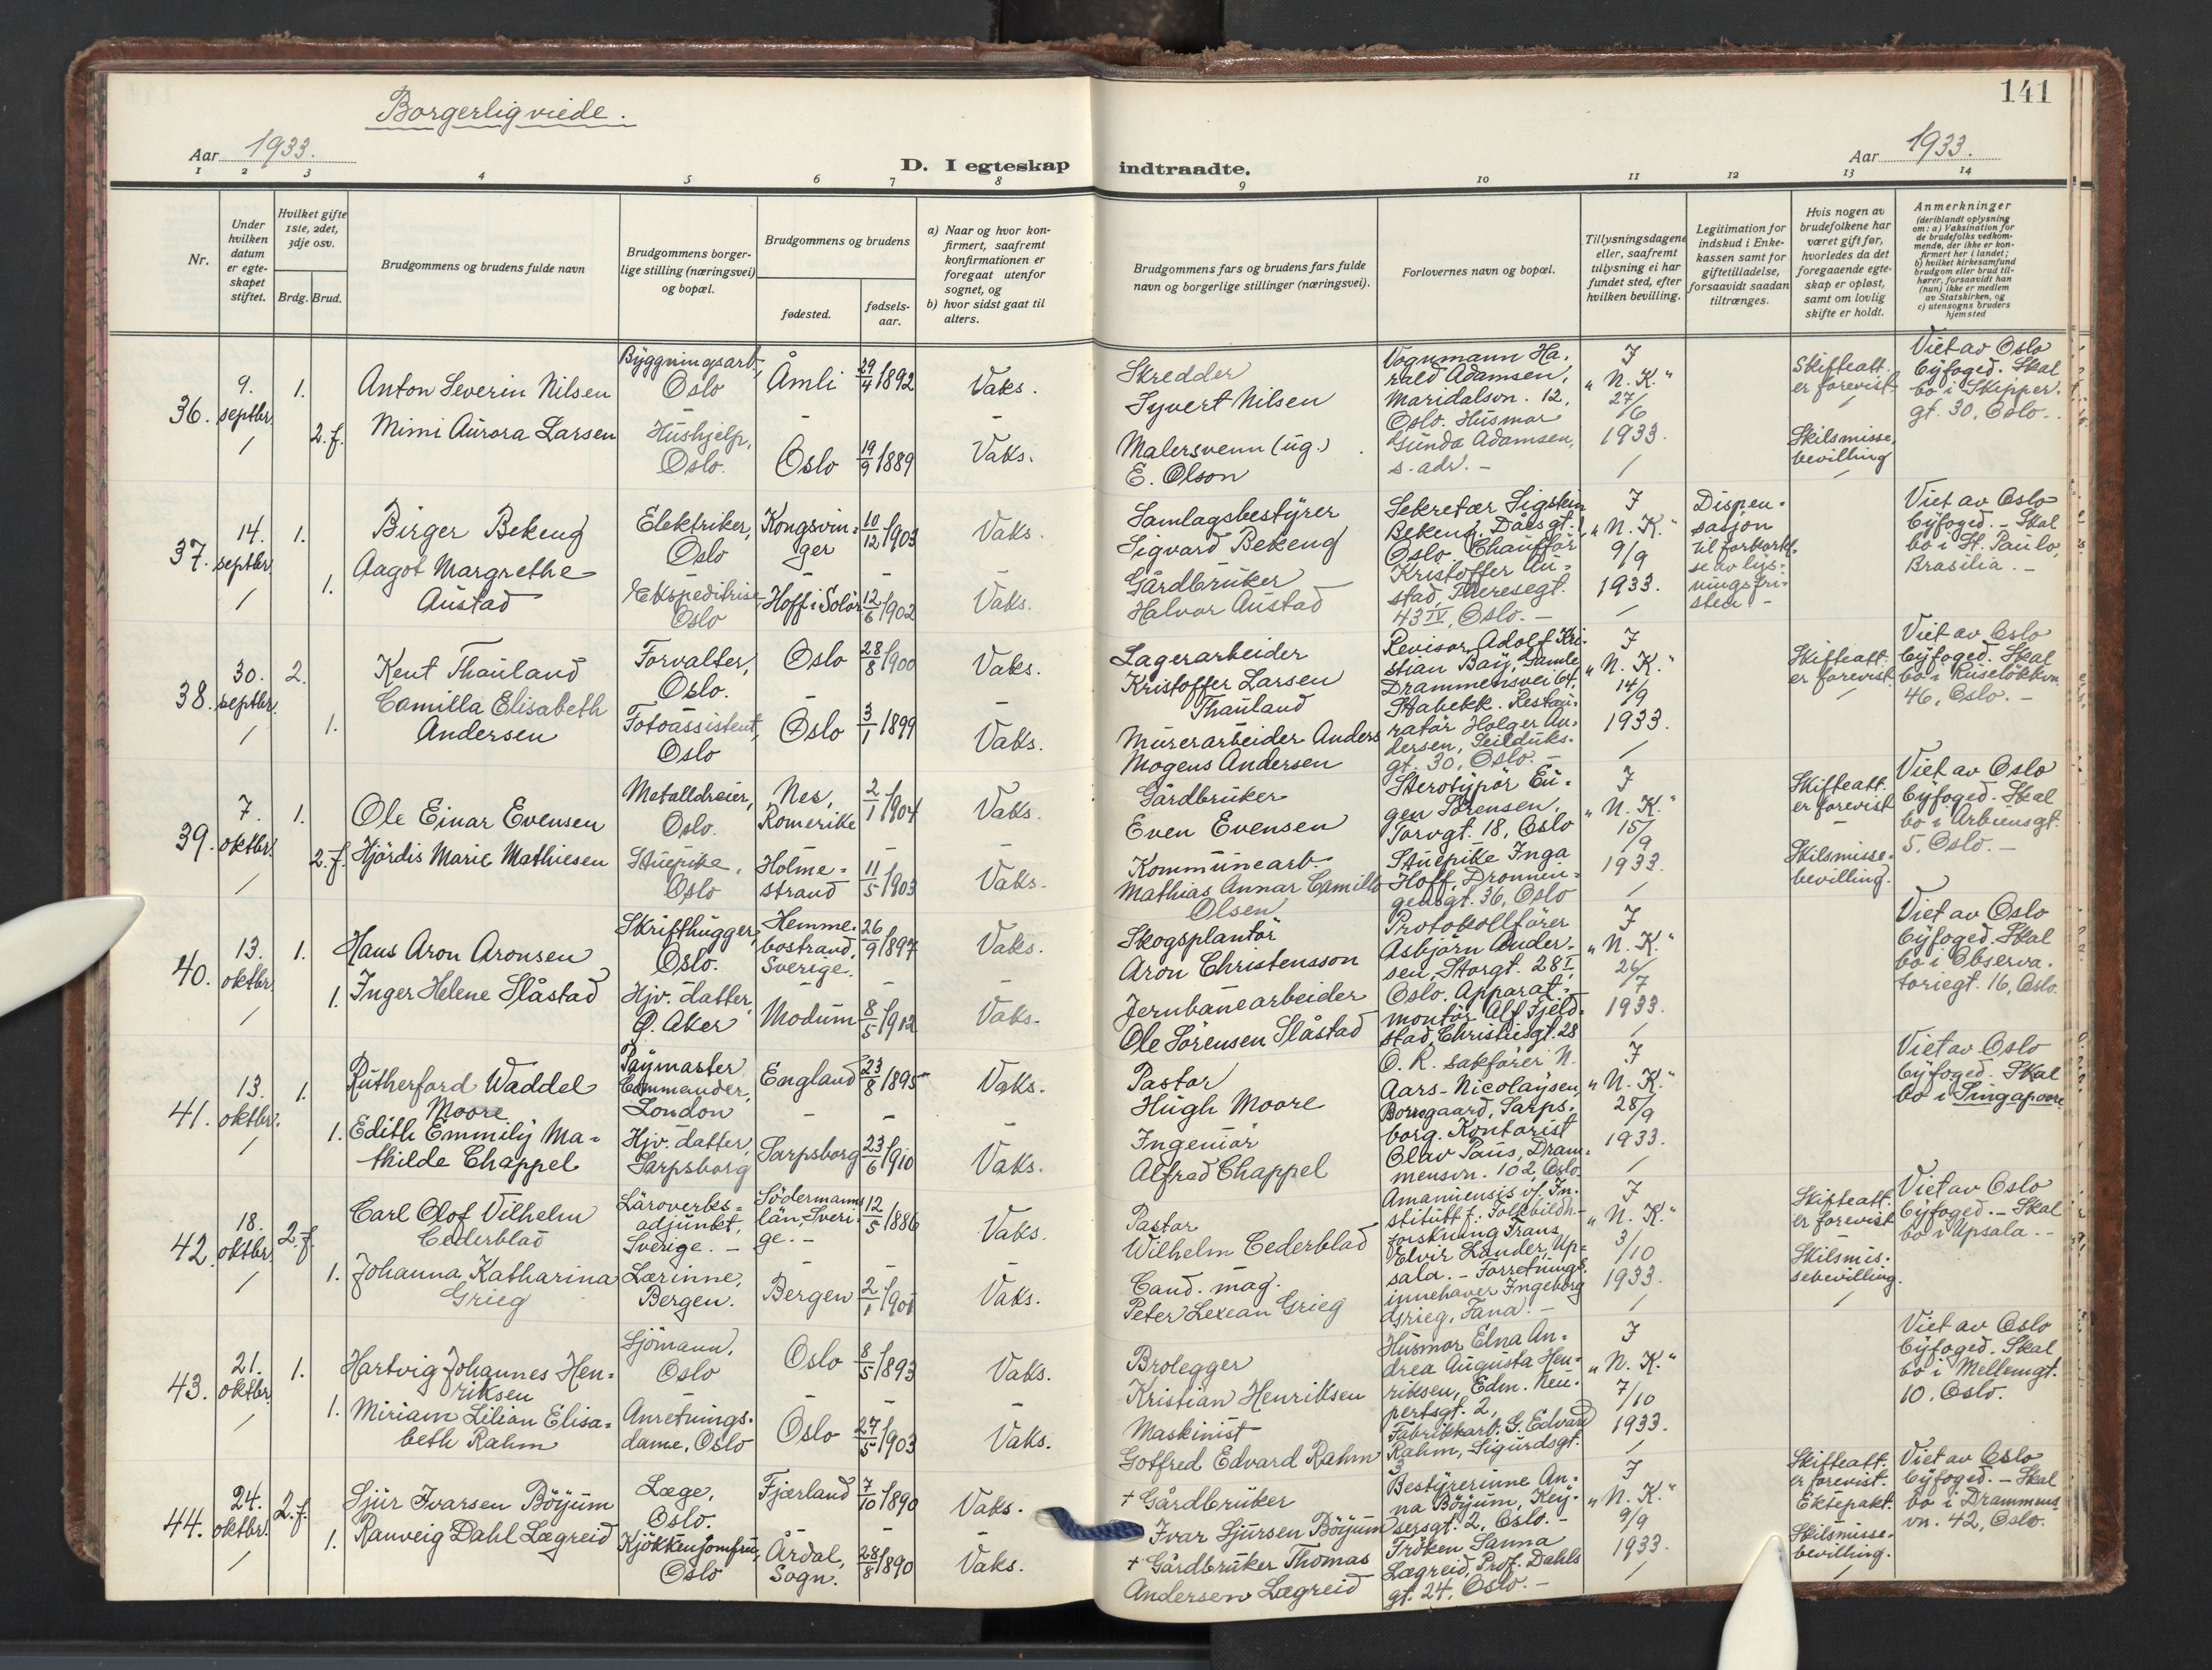 Borgerlig viede.
Aar 1933.
D. I egteskap
1 2 3 4 5 6 7 8
Nr.
Under hvilken datum er egteskapet stiftet.
Hvilket gifte 1ste, 2det, 3dje osv.
Brdg. Brud.
Brudgommens og brudens fulde navn
Brudgommens borgerlige stilling (næringsvei) og bopæl.
Brudgommens og brudens
fødested.
fødselsaar.
a) Naar og hvor konfirmert, saafremt konfirmationen er foregaat utenfor sognet, og
b) hvor sidst gaat til alters.
141
Aar 1933.
indtraadte.
9 10 11 12 13 14
Brudgommens fars og brudens fars fulde navn og borgerlige stillinger (næringsvei).
Forlovernes navn og bopæl.
Tillysningsdagene eller, saafremt tillysning ei har fundet sted, efter hvilken bevilling.
Legitimation for indskud i Enkekassen samt for giftetilladelse, forsaavidt saadan tiltrænges.
Hvis nogen av brudefolkene har været gift før, hvorledes da det foregaaende egteskap er opløst, samt om lovlig skifte er holdt.
Anmerkninger
(deriblandt oplysning om: a) Vaksination for de brudefolks vedkommende, der ikke er konfirmert her i landet;
b) hvilket kirkesamfund brudgom eller brud tilhører, forsaavidt han (hun) ikke er medlem av Statskirken, og
c) utensogns bruders hjemsted
36. 9. septbr. 1. Anton Severin Nilsen Byggningsarb., Oslo Åmli 29/4 1892 Vaks.
2. f. Mimi Aurora Larsen Hushjelp, Oslo. Oslo 19/9 1889 Vaks.
Skredder
Syvert Nilsen
Malersvenn (ug.)
E. Olson
Vognmann Ha-
rald Adamsen,
Maridalsvn. 12,
Oslo. Husmor
Gunda Adamsen,
s. adr. -
I
"N. K."
27/6
1933.
Skifteatt.
er forevist
Skilsmisse,
bevilling
Viet av Oslo
byfoged. Skal
bo i Skipper.
gt. 30, Oslo.
37. 14. septbr. 1. Birger Bekeng Elektriker, Oslo Kongsvinger 10/12 1903 Vaks.
1. Aagot Margrethe Austad Ekspeditrise Oslo Hoff i Solör 12/6 1902 Vaks.
Samlagsbestyrer
Sigvard Bekeng
Gårdbruker
Halvor Austad
Sekretær Sigstein
Bekeng, Daasgt.
Oslo. Chaufför
Kristoffer Au-
stad, Theresegt.
43 IV, Oslo. -
I
"N. K."
9/9
1933.
Dispen-
sasjon
til forkortel-
se av lys-
ningsfri-
sten -
Viet av Oslo
byfoged. - Skal
bo i St. Paulo,
Brasilia. -
38. 30. septbr. 2. Kent Thauland Forvalter, Oslo. Oslo 28/8 1900 Vaks.
1. Camilla Elisabeth Andersen Fotoassistent, Oslo Oslo 3/1 1899 Vaks.
Lagerarbeider
Kristoffer Larsen
Thauland
Murerarbeider Anders
Mogens Andersen
Revisor Adolf Kri-
stian Bay, Gamle
Drammensvei 64,
Stabekk. Restau-
ratör Holger An-
dersen, Seilduks-
gt. 30, Oslo. -
I
"N. K."
14/9
1933.
Skifteatt.
er forevist.
Viet av Oslo
byfoged. Skal
bo i Ruseløkkvn.
46, Oslo. -
39. 7. oktbr. 1. Ole Einar Evensen Metalldreier, Oslo. Nes, Romerike 2/1 1904 Vaks.
2. f. Hjördis Marie Mathiesen Stuepike, Oslo Holmestrand 11/5 1903 Vaks.
Gårdbruker
Even Evensen
Kommunearb.
Mathias Annar Camillo
Olsen
Sterotypör Eu-
gen Sörensen,
Torvgt. 18, Oslo
Stuepike Inga
Hoff, Dronnin-
gensgt. 36, Oslo
I
"N. K."
15/9
1933.
Skifteatt.
er forevist
Skilsmisse-
bevilling.
Viet av Oslo
byfoged. Skal
bo i Arbiensgt.
5. Oslo. -
40. 13. oktbr. 1. Hans Aron Aronsen Skrifthugger, Oslo. Hemmebostrand, Sverige. 26/9 1897 Vaks.
1. Inger Helene Slåstad Hjv. datter, Ø. Aker Modum 8/5 1912 Vaks.
Skogsplantör
Aron Christensson
Jernbanearbeider
Ole Sörensen Slåstad
Protokollförer
Asbjörn Ander-
sen, Storgt. 28 I,
Oslo. Apparat-
montör Alf Fjeld-
stad, Christiesgt. 28
I
"N. K."
26/7
1933.
Viet av Oslo
byfoged. Skal
bo i Observa-
toriegt. 16, Oslo.
41. 13. oktbr. 1. Rutherford Waddel Moore Paymaster Commander, London England 23/8 1895 Vaks.
1. Edith Emmily Mathilde Chappel Hjv. datter, Sarpsborg Sarpsborg 23/6 1910 Vaks.
Pastor
Hugh Moore
Ingeniör
Alfred Chappel
O. R. sakförer N.
Aars-Nicolaysen,
Borregaard, Sarps-
borg. Kontorist
Olav Paus, Dram-
mensvn. 102, Oslo
I
"N. K."
28/9
1933.
Viet av Oslo
byfoged. Skal
bo i Singapoore
42. 18. oktbr. 2. f. Carl Olof Vilhelm Cederblad Läroverksadjunkt, Sverige. - Södermannslän, Sverige. - 12/5 1886 Vaks.
1. Johanna Katharina Grieg Lærinne, Bergen. Bergen 2/1 1901 Vaks.
Pastor
Wilhelm Cederblad
Cand. mag.
Peter Lexean Grieg
Amanuensis v/ In-
stitutt f. Folkbildn-
forskning Frans
Elvir Lander, Up-
sala. - Forretnings-
innehaver Ingeborg
Grieg, Fana. -
I
"N. K."
3/10
1933.
Skifteatt.
er forevist
Skilsmis-
sebevilling.
Viet av Oslo
byfoged. - Skal
bo i Upsala. -
43. 21. oktbr. 1. Hartvig Johannes Henriksen Sjömann, Oslo Oslo 8/5 1893 Vaks.
1. Miriam Lilian Elisabeth Rahm Anretningsdame, Oslo Oslo 27/5 1903 Vaks.
Brolegger
Kristian Henriksen
Maskinist
Gotfred Edvard Rahm
Husmor Elna An-
drea Augusta Hen-
riksen, Edm. Neu-
pertsgt. 2,
Fabrikkarb. G. Edvard
Rahm, Sigurdsgt.
3
I
"N. K."
7/10
1933.
Viet av Oslo
byfoged. Skal
bo i Mellemgt.
10, Oslo.
44. 24. oktbr. 2. f. Sjur Ivarsen Böyum Læge, Oslo. Fjærland 7/10 1890 Vaks.
1. Ranveig Dahl Lægreid Kjökkenjomfru, Oslo Årdal, Sogn. 28/8 1890 Vaks.
+ Gårdbruker
Ivar Sjursen Böyum
+ Gårdbruker Thomas
Andersen Lægreid
Bestyrerinne An-
na Böyum, Key-
sersgt. 2, Oslo. -
Fröken Sanna
Lægreid, Prof. Dahls
gt. 24, Oslo. -
I
"N. K."
9/9
1933.
Skifteatt.
er forevist.
Ektepakt.
Skilsmisse-
bevilling.
Viet av Oslo
byfoged. - Skal
bo i Drammens
vn. 42, Oslo.